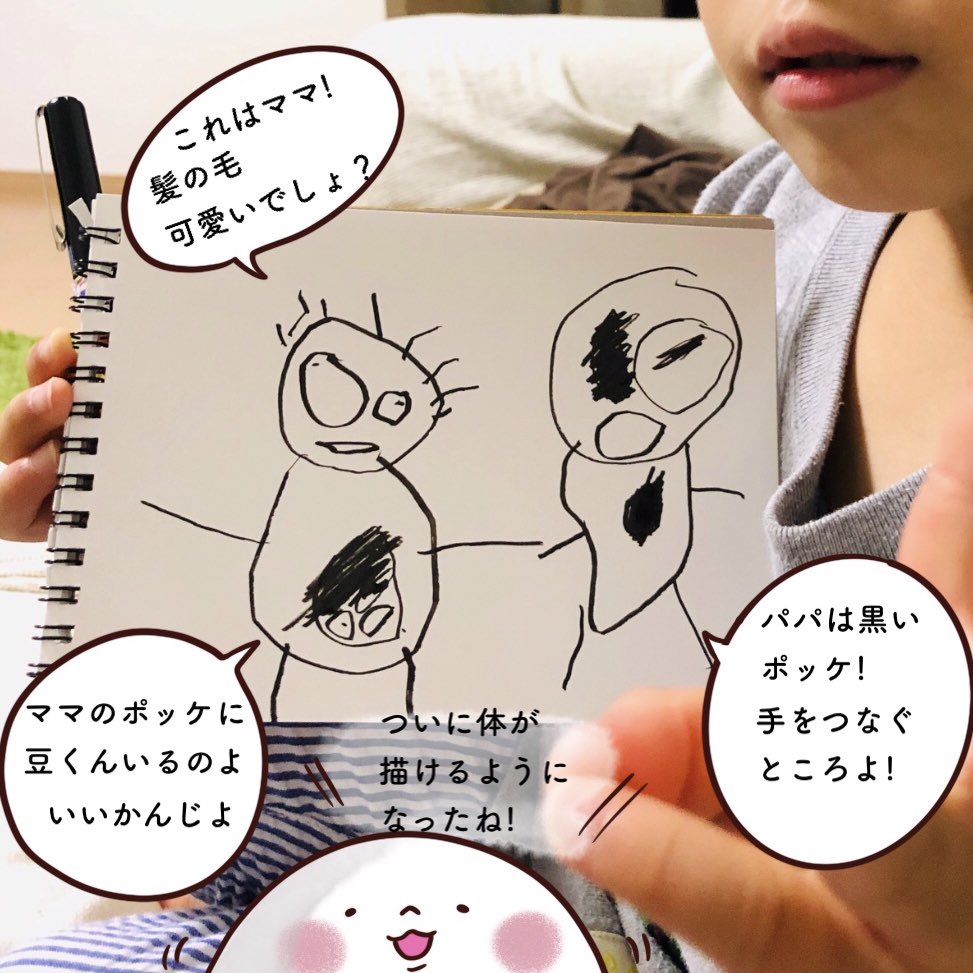 これはママ!
髪の毛
可愛いでしょ?
ママのポッケに
豆くんいるのよ
いいかんじよ
ついに体が
描けるように
なったね!
パパは黒い
ポッケ!
手をつなぐ
ところよ!